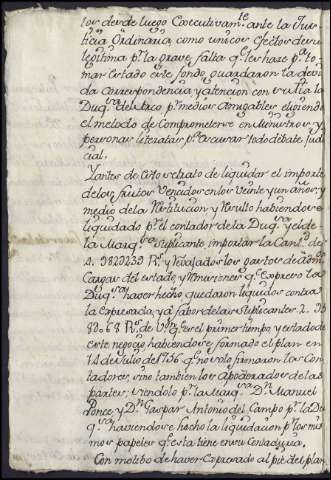 tos desde luego Executivam.te ante la Jus
ticia Ordinaria, como unicos efectos de su
legitima p.r la grave falta q.e les haze p.a to
mar estado este fondo, guardaron la devi
da correspondencia, y atencion con su tia la
Duq.sa del Arco p.r medios amigables eligiendo
el metodo de Comprometerse en Ministros y
personas literatas p.a escusar todo debate Judi
cial.
Y antes de esto se trato de liquidar el importe
de los frutos Vencidos en los Veinte y un años, y
medio de la Restitucion y Resulto habiendose
liquidado p.r el contador de la Duq.sa y el de
la Marq.sa Suplicante importar la Cant.d de
R.s y revajados los gastos de
Cargas del estado, y Pensiones q.e Expreso la
Duq.sa haver hecho quedaron liquidos contra
la Expresada, y a favor de las Suplicantes
R.s de V.n en el primer tiempo y estado de
este negocio habiendose formado el plan en
14 de Julio de 1736 q.e no solo firmaron los Con
tadores, sino tambien los apoderados de las
partes, siendolo p.r la Marq.sa D.n Manuel
Ponce, y D.n Gaspar Antonio del Campo p.r la Du
q.sa haviendose hecho la liquidacion p.r los mis
mos papeles q.e esta tiene en su Contaduria,
Con motibo de haver Expresado al pie del plan